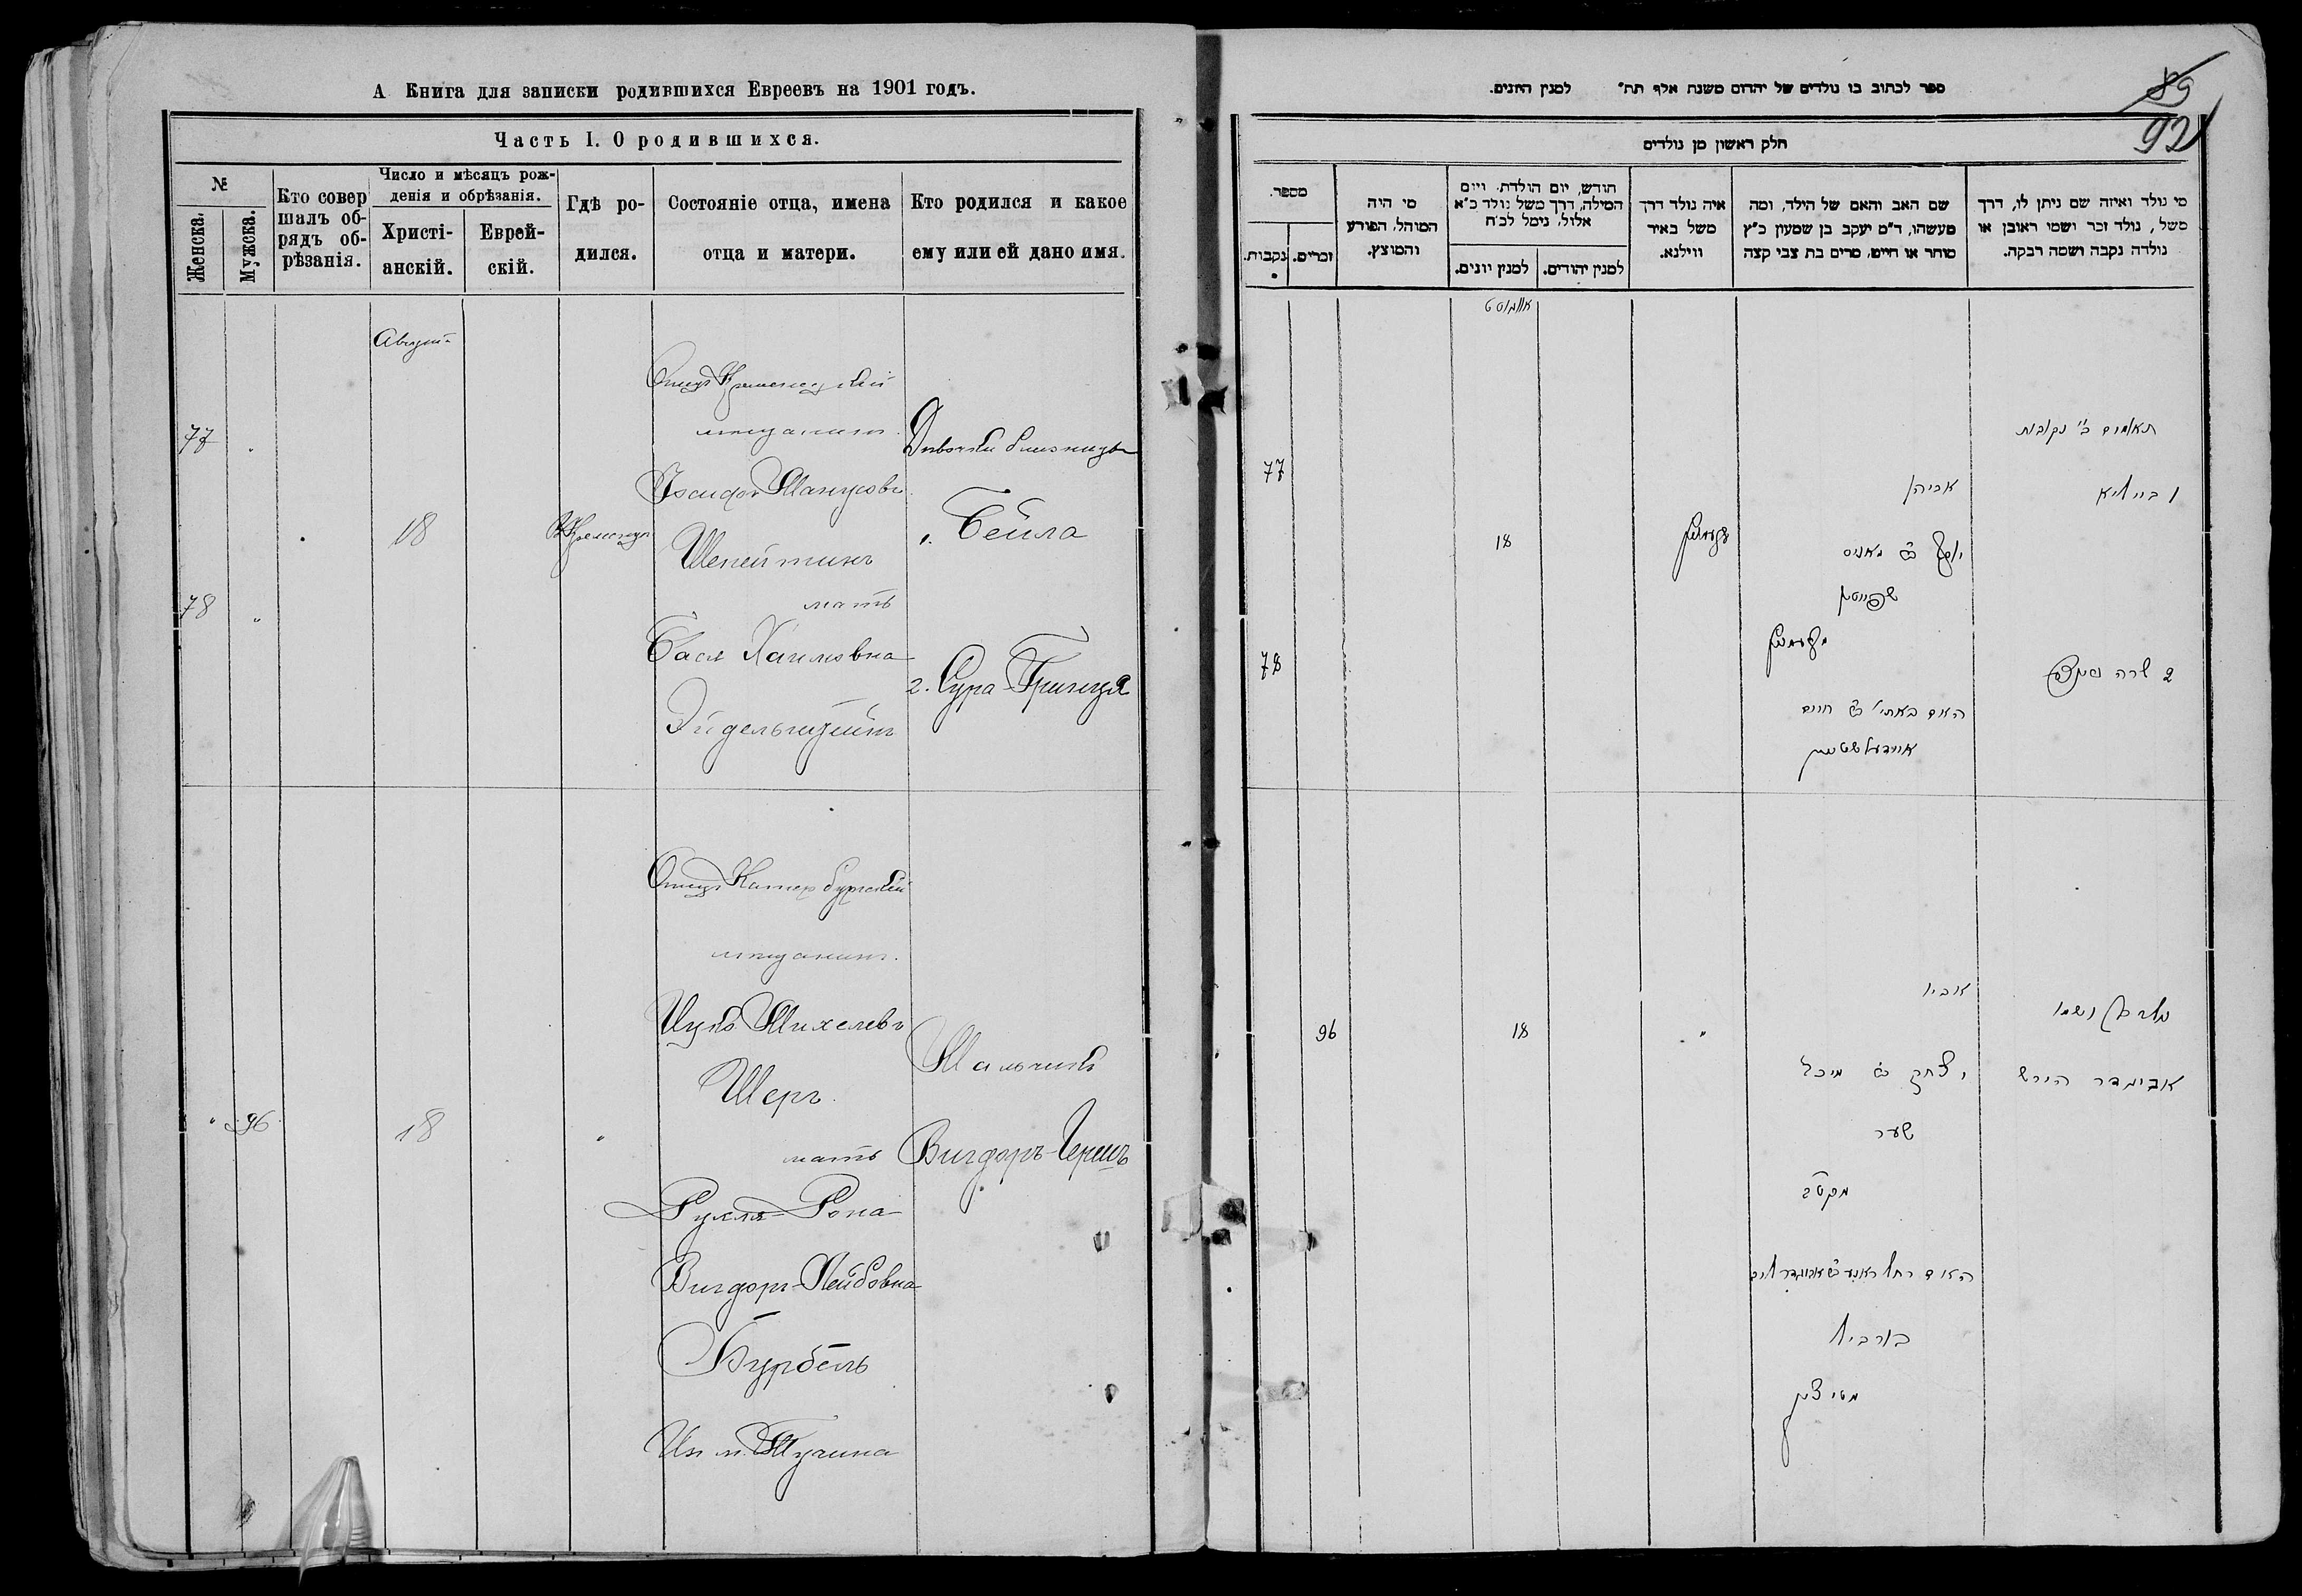 А Книга для записки родившихся Евреевъ на 1901 годъ.
Часть I. О родившихся.
№
Женска.
Мужска.
Кто совер
шалъ об-
рядъ об-
рѣзанія.
Число и мѣсяцъ рож-
денія и обрѣзанія.
Христі-
анскій.
Еврей-
скій.
Гдѣ ро-
дился.
Состояніе отца, имена
отца и матери.
Кто родился и какое
ему или ей дано имя.
77
78
18
Отецъ Кременецкій
мещанинъ
Мануговъ
Шпейтинъ
мать
Бася Хаимовна
Эйдельштейнъ
Дѣвочки близницы
1. Бейла
2. Сура-Гринця
96
18
"
Отецъ Катербургскій
мещанинъ.
Ицко Михелевъ
Шеръ
мать
Рухля-Рона
Вигдоръ-Лейбовна
Бурбель
Мальчикъ
Вигдоръ-Гершъ
89
92
ספר לכתוב בו נולדים של יהדום משנת אלף תת" למנין היונים.
חלק ראשון מן נולדים
מספר.
נקבות.
זכרים.
מי היה
המוהל, הפורע
והמוצץ.
חודש, יום הולדת, ויום
המילה, דרך משל נולד כ"א
אלול, נימל לכ"ח
למנין יונים.
למנין יהודים.
איה נולד דרך
משל באיר
ווילנא.
שם האב והאם של הילד, ומה
מעשהו, ד"מ יעקב בן שמעון כ"ץ
סוחר או חייט, מרים בת צבי קצה
מי נולד ואיזה שם ניתן לו, דרך
משל, נולד זכר ושמו ראובן או
נולדה נקבה ושמה רבקה.
אויגוסט
77
18
תאומים ב' נקבות
1 ביילא
78
האם באסי' בת חיים
איידעלשטיין
2 שרה
96
18
"
אביו
יצחק בן מיכל
שער
בורביל
אביגדר הירש